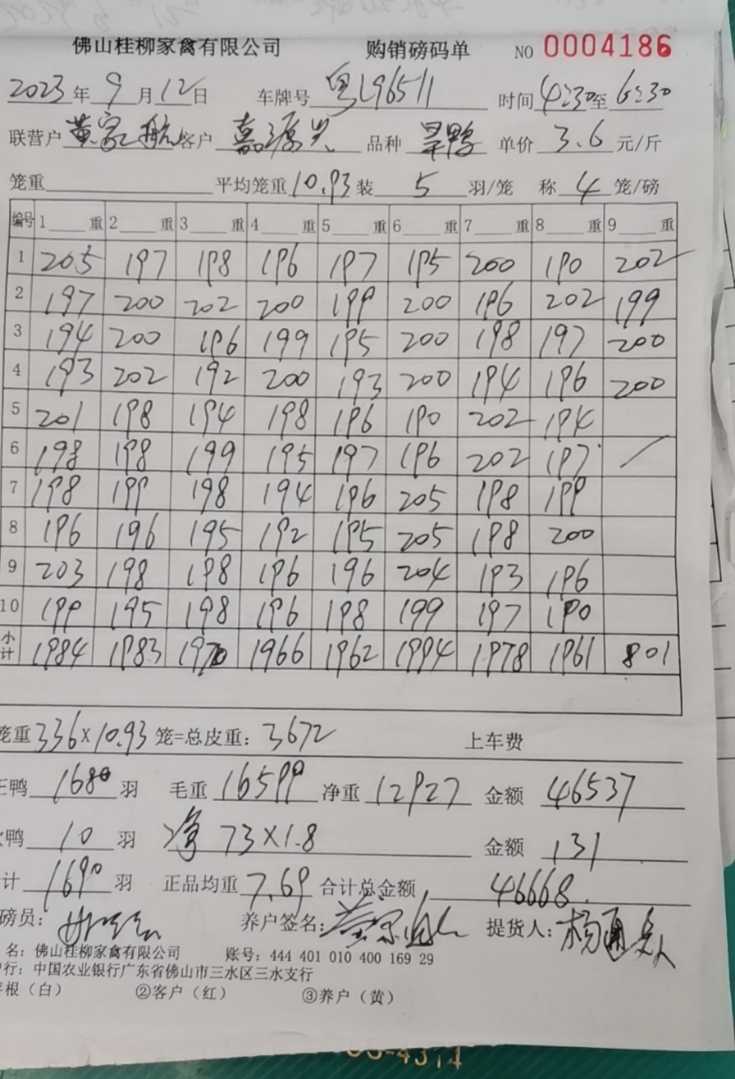 佛山桂柳家禽有限公司 购销磅码单 NO 0004186
2023年9月12日 车牌号 粤L96511 时间 4:30至6:30
联营户 黄家航 客户 嘉源兴 品种 旱鸭 单价 3.6 元/斤
笼重 平均笼重10.93装 5 羽/笼 称 4 笼/磅
编号 1 重 2 重 3 重 4 重 5 重 6 重 7 重 8 重 9 重
1 205 197 198 196 197 195 200 190 202
2 197 200 202 200 199 200 196 202 199
3 194 200 196 199 195 200 198 197 200
4 193 202 192 200 193 200 194 196 200
5 201 198 194 198 196 190 202 194
6 198 198 199 195 197 196 202 197 /
7 198 199 198 194 196 205 198 199
8 196 196 195 192 195 205 198 200
9 203 198 198 196 196 204 193 196
10 199 195 198 196 198 199 197 190
小计 1984 1983 1970 1966 1962 1994 1978 1961 801
笼重336×10.93笼=总皮重:3672 上车费
鸭 1680 羽 毛重 16599 净重 12927 金额 46537
鸭 10 羽 净 73×1.8 金额 131
计 1690 羽 正品均重 7.69 合计总金额 46668
磅员: 养户签名: 提货人:
名:佛山桂柳家禽有限公司 账号:444 401 010 400 169 29
行:中国农业银行广东省佛山市三水区三水支行
根(白) ②客户(红) ③养户(黄)